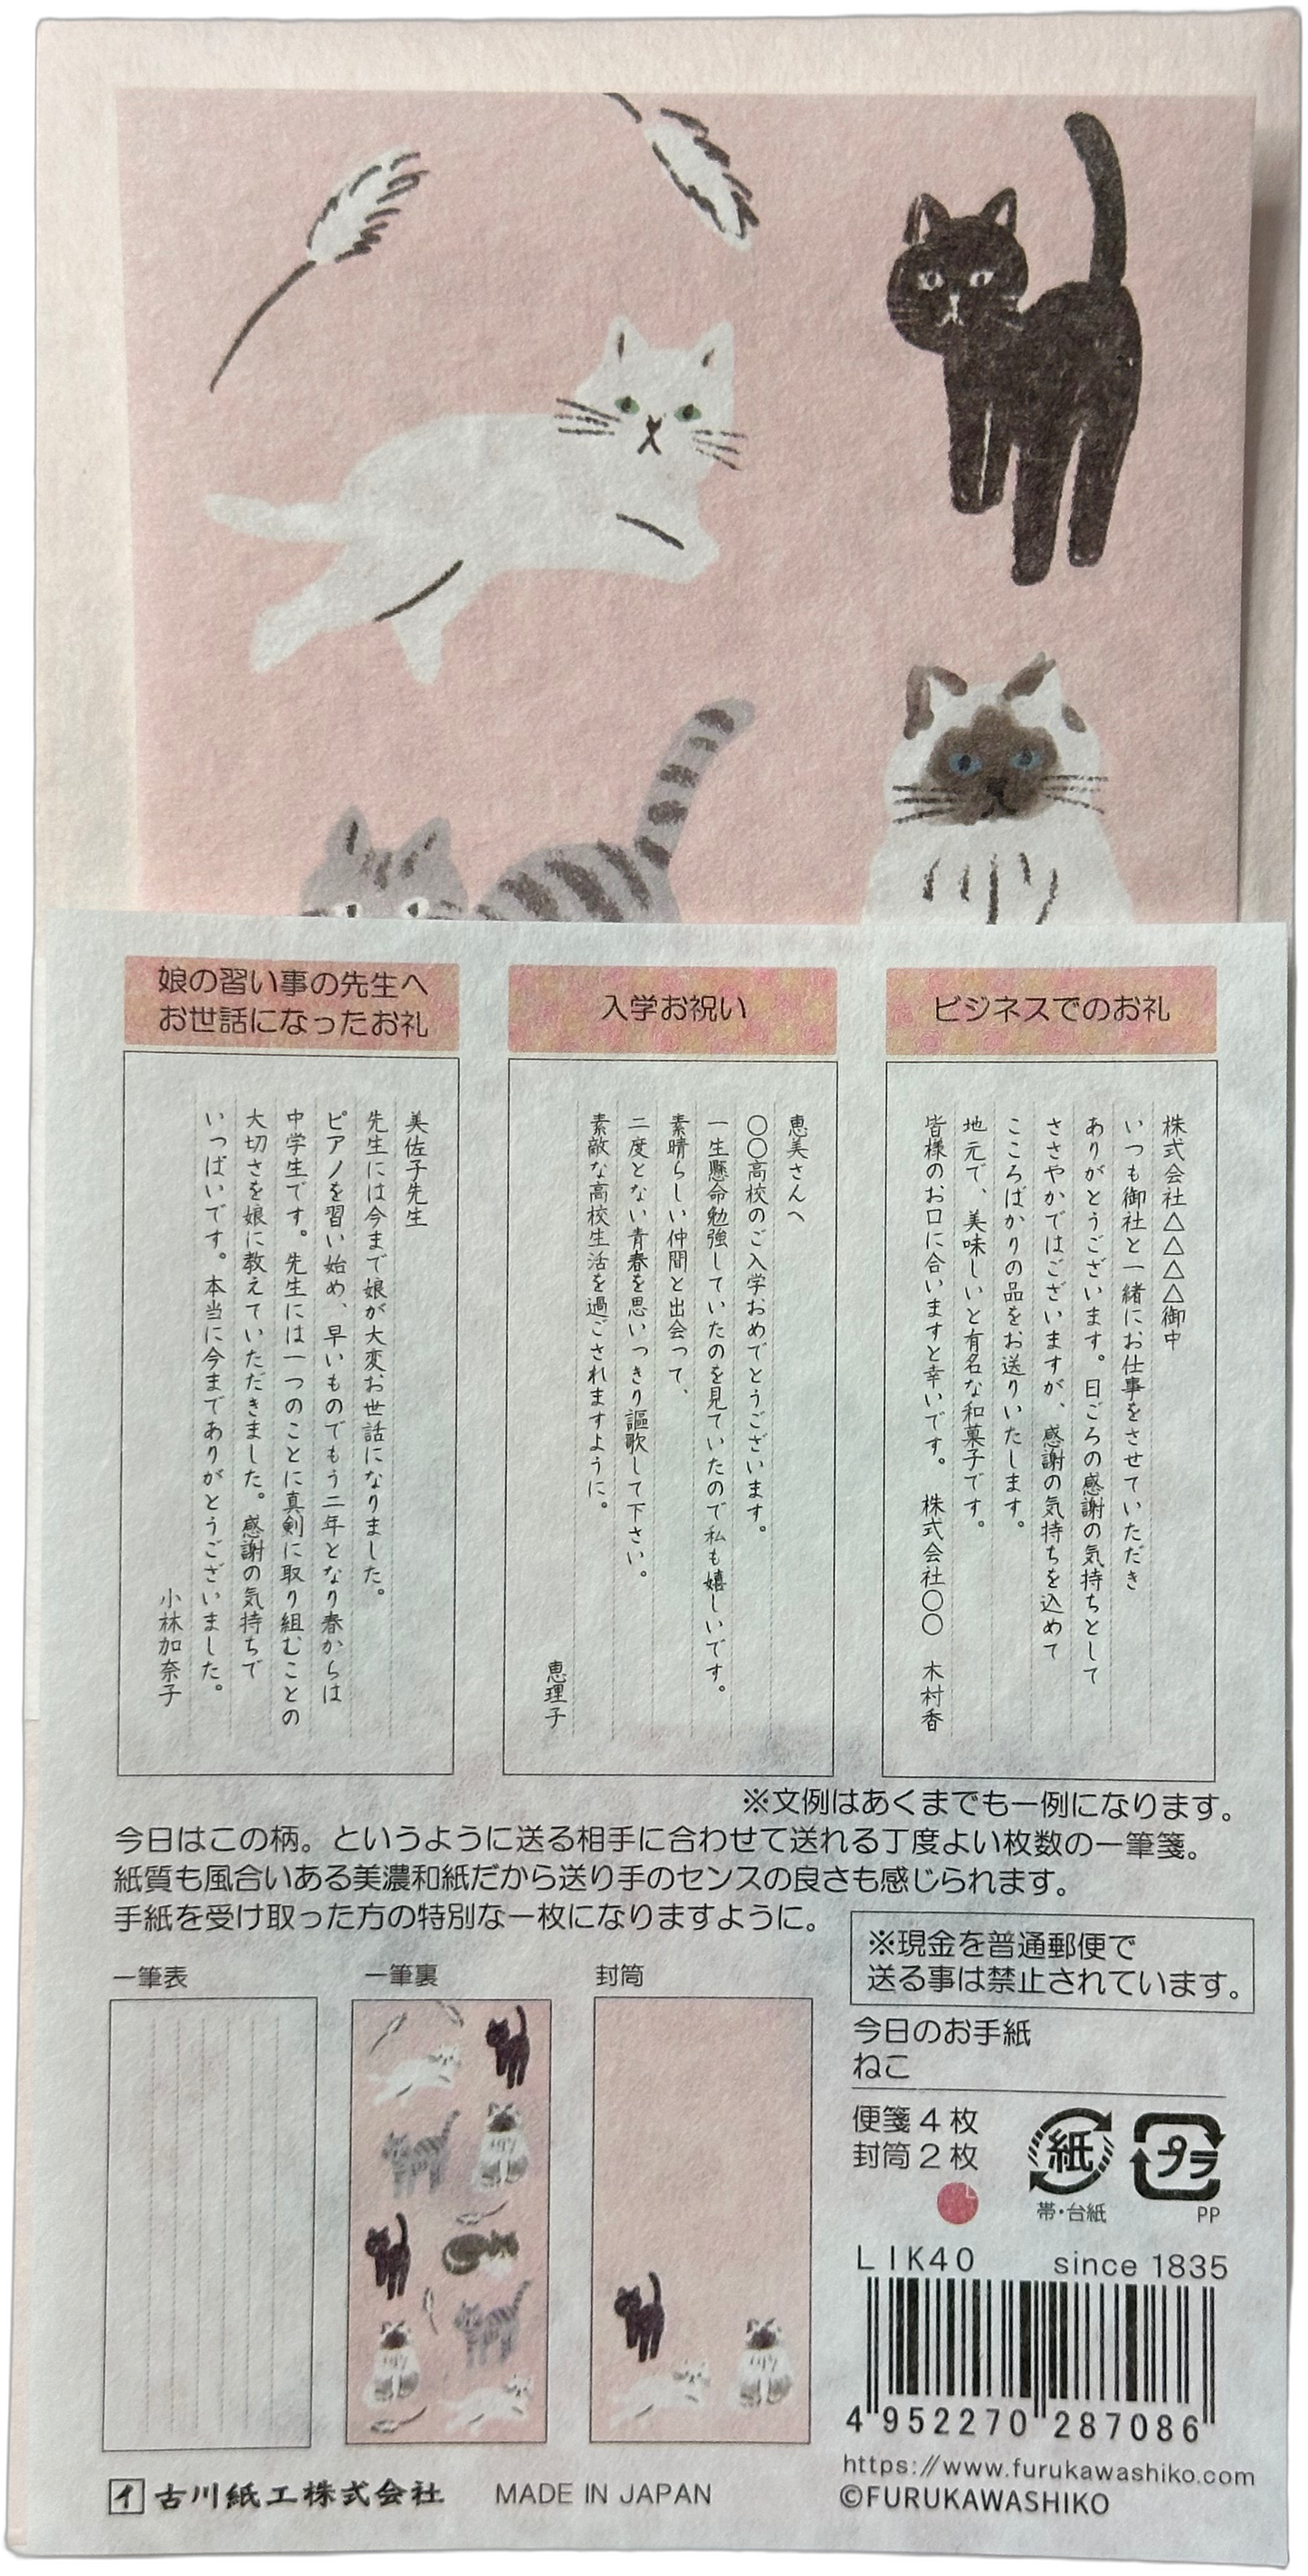 娘の習い事の先生へ
お世話になったお礼
美佐子先生
先生には今まで娘が大変お世話になりました。
ピアノを習い始め、早いものでもう二年となり春からは
中学生です。先生には一つのことに真剣に取り組むことの
大切さを娘に教えていただきました。感謝の気持ちで
いっぱいです。本当に今までありがとうございました。
小林加奈子
入学お祝い
恵美さんへ
〇〇高校のご入学おめでとうございます。
一生懸命勉強していたのを見ていたので私も嬉しいです。
素晴らしい仲間と出会って、
二度とない青春を思いっきり謳歌して下さい。
素敵な高校生活を過ごされますように。
恵理子
ビジネスでのお礼
株式会社△△△△御中
いつも御社と一緒にお仕事をさせていただき
ありがとうございます。日ごろの感謝の気持ちとして
ささやかではございますが、感謝の気持ちを込めて
こころばかりの品をお送りいたします。
地元で、美味しいと有名な和菓子です。
皆様のお口に合いますと幸いです。 株式会社〇〇 木村香
※文例はあくまでも一例になります。
今日はこの柄。というように送る相手に合わせて送れる丁度よい枚数の一筆箋。
紙質も風合いある美濃和紙だから送り手のセンスの良さも感じられます。
手紙を受け取った方の特別な一枚になりますように。
※現金を普通郵便で
送る事は禁止されています。
一筆表
一筆裏
封筒
今日のお手紙
ねこ
便箋4枚
封筒2枚
紙
帯・台紙
プラ
PP
LIK40
since 1835
4 952270 287086
https://www.furukawashiko.com
©FURUKAWASHIKO
イ 古川紙工株式会社
MADE IN JAPAN